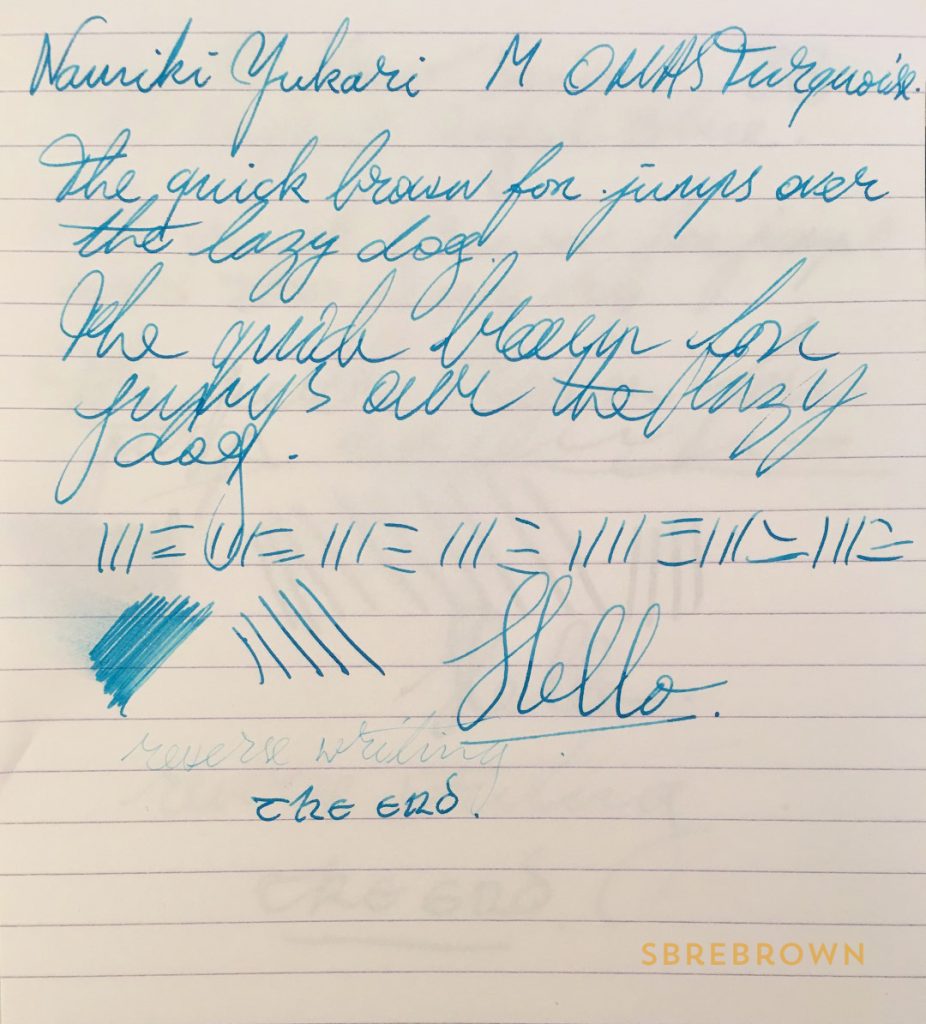 Namiki Yukari M OMAS Turquoise.
The quick brown fox jumps over
the lazy dog.
The quick brown fox
jumps over the lazy
dog.
Hello.
reverse writing.
THE END.
SBREBROWN